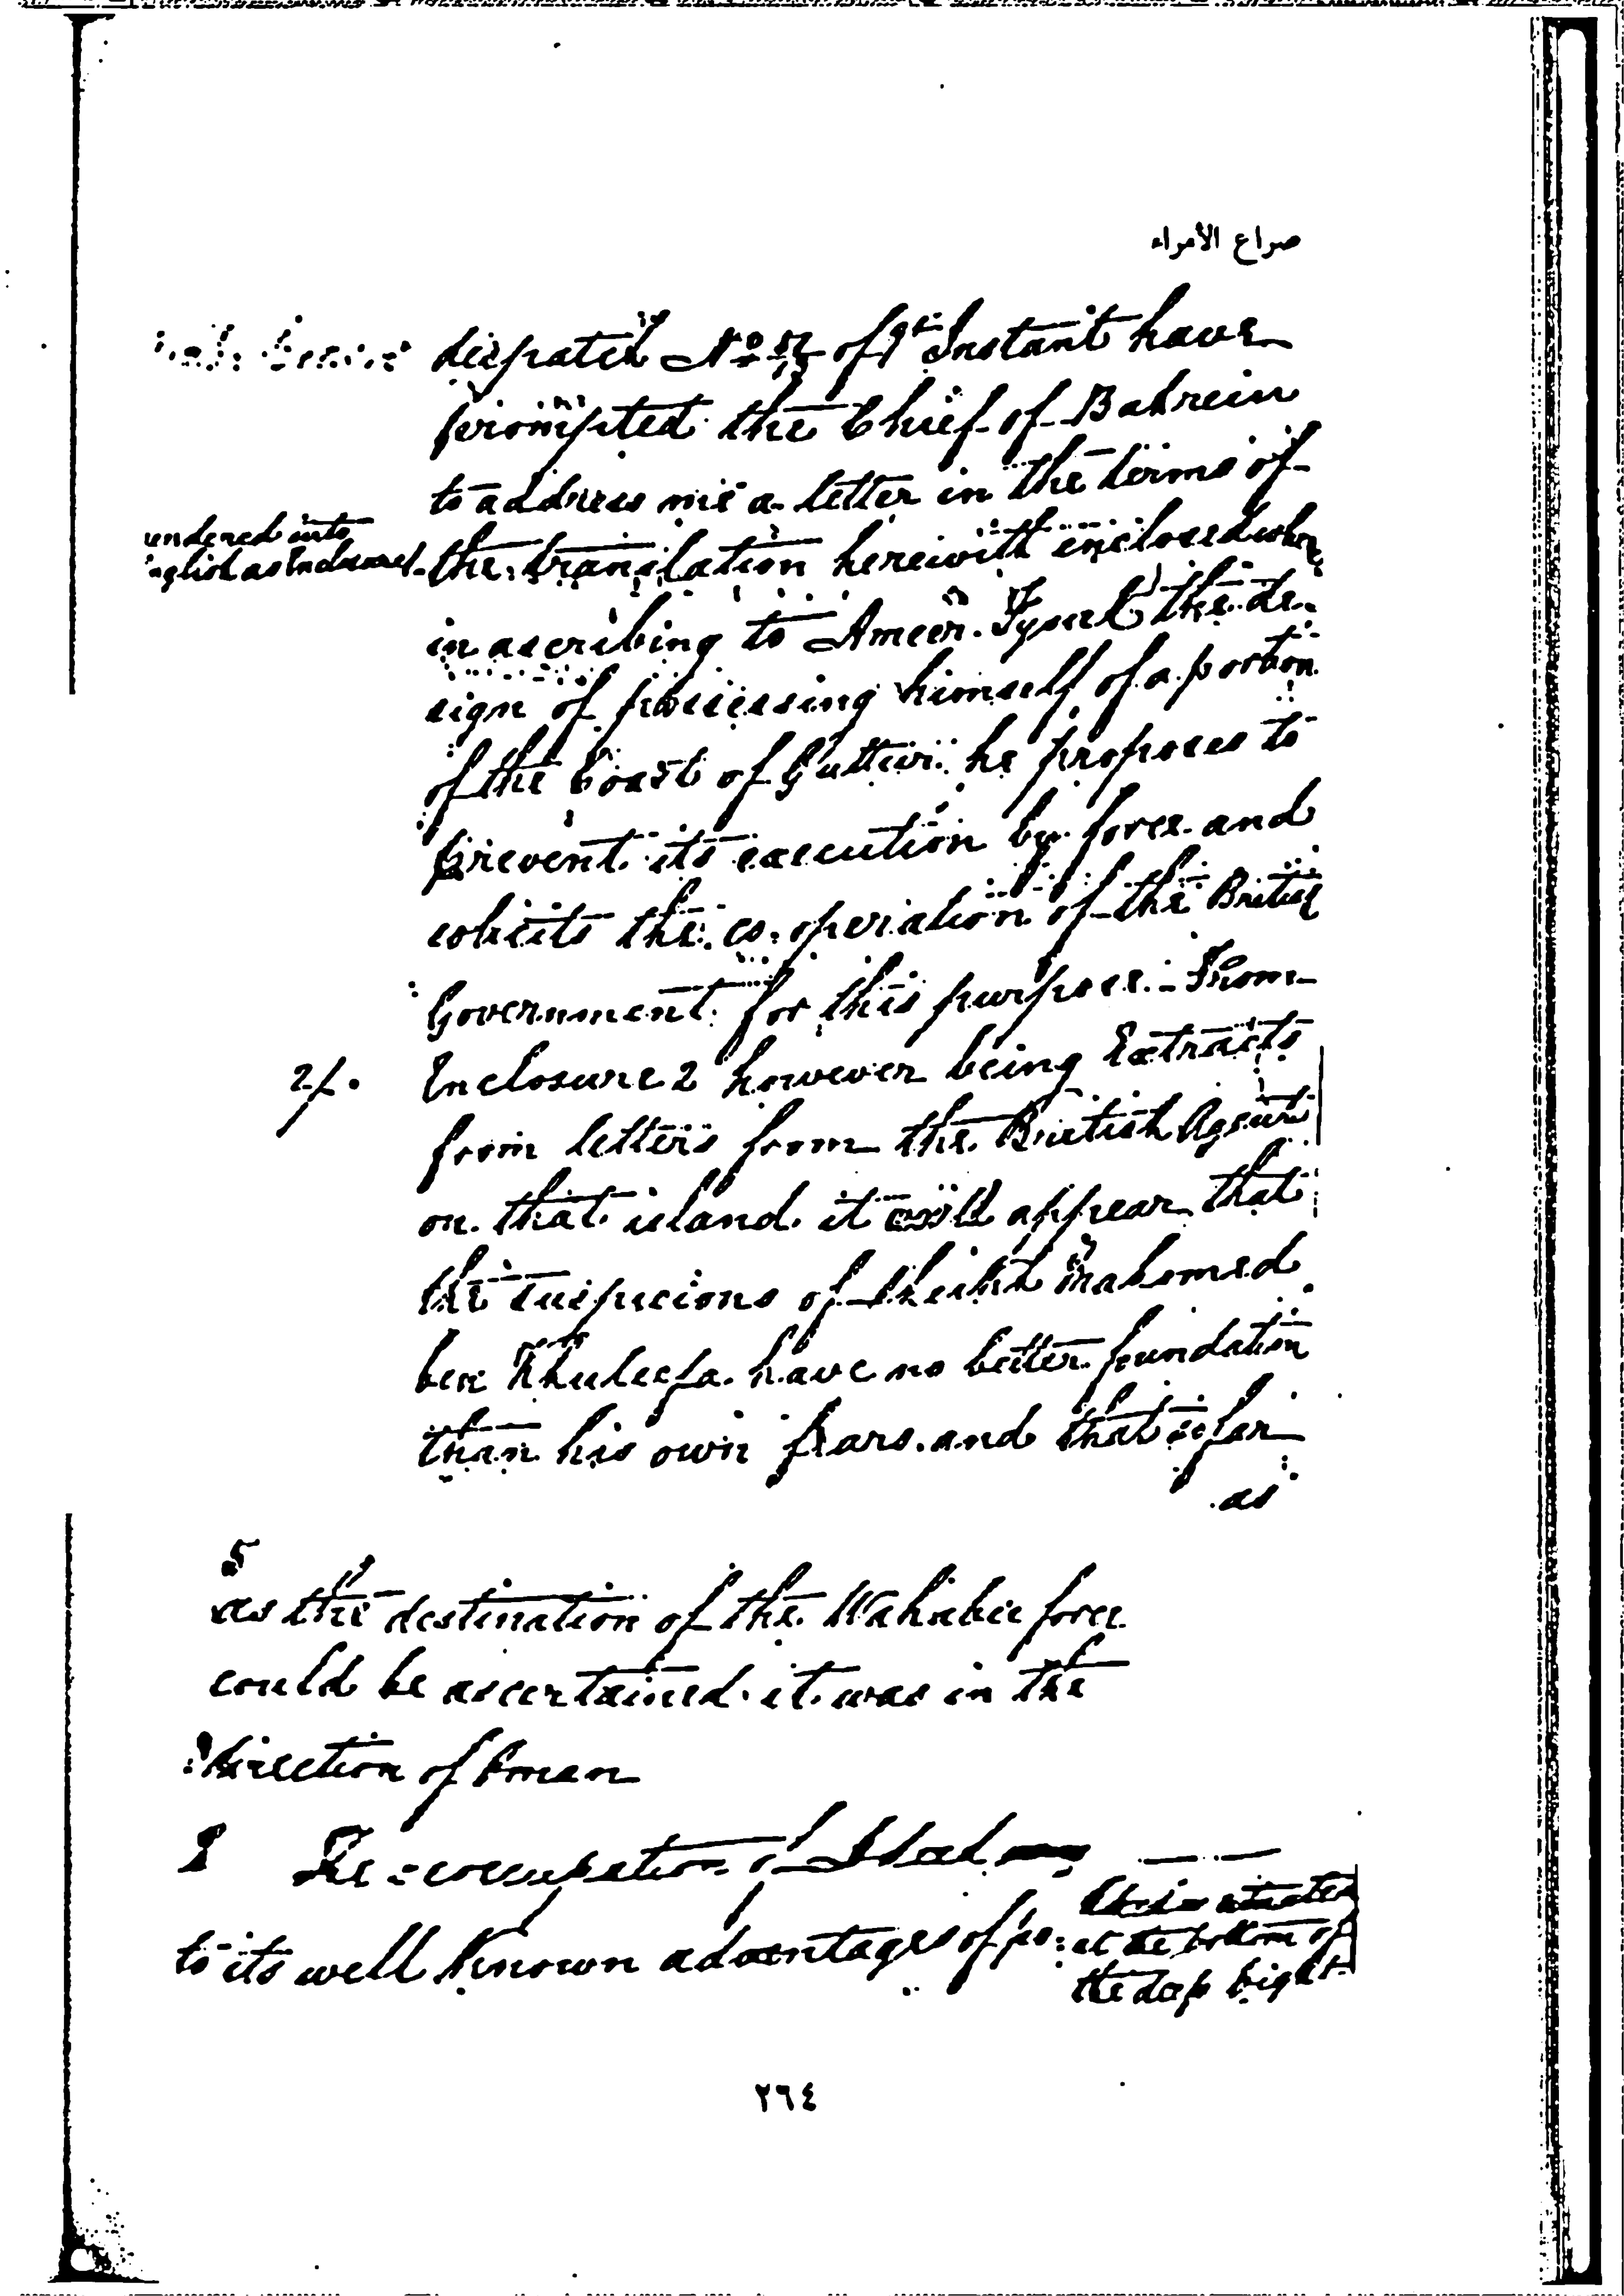 صراع الأمراء
dispatch No of 1st Instant have
prompted the Chief of Bahrein
to address me a letter in the terms of
undered into
nglish as Inclosure 1.
the translation herewith enclosed when
in ascribing to Ameer Fysul the de-
sign of possessing himself of a portion
of the Coast of Guttur he proposes to
prevent its execution by force and
solicits the co-operation of the British
Government for this purpose. - From
2/. Enclosure 2 however being Extracts
from letters from the British Agent
on that island it will appear that
the suspicions of Sheikh Mahomed
ben Khuleefa have no better foundation
than his own fears and that so far
as
5
as the destination of the Wahabee force
could be ascertained it was in the
direction of Oman
The occupation of
to its well known advantages of po:
at the bottom of
the deep bight
٢٦٤